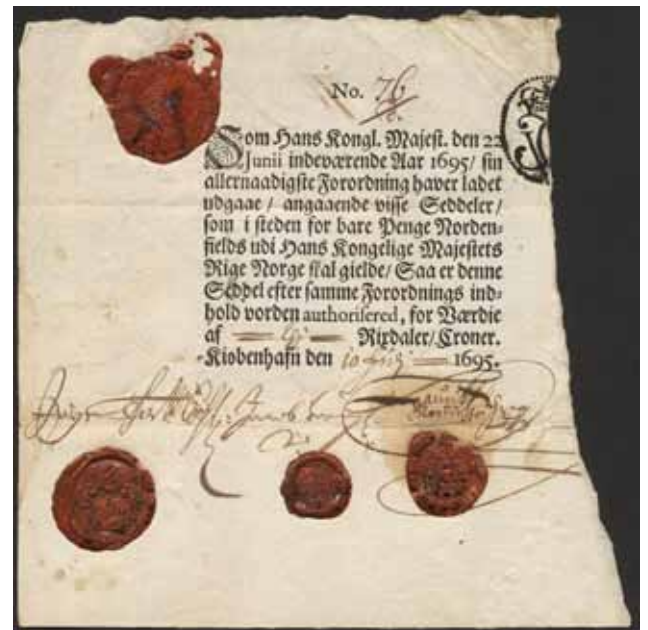 No. 76
Som Hans Kongl. Majest. den 22
Junii indeværende Aar 1695/ sin
allernaadigste Forordning haver ladet
udgaae / angaaende visse Seddeler/
som i steden for bare Penge Norden-
fields udi Hans Kongelige Majestets
Rige Norge skal gielde/ Saa er denne
Seddel efter samme Forordnings ind-
hold vorden authorisered, for Værdie
af Rixdaler/ Croner.
Kiobenhafn den 10 1695.